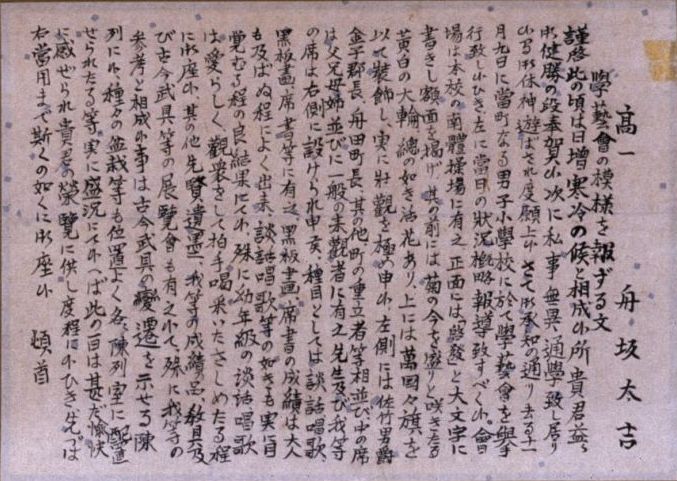 高一 舟坂太吉
學藝會の模様を報ずる文
謹啓此の頃は日増寒冷の候と相成候所貴君益々
御健勝の段奉賀候次に私事無異通學致し居り
候間御休神遊ばされ度願上候さて御承知の通り去る十一
月九日に當町なる男子小學校に於て學藝會を擧
行致し候ひき左に當日の狀況概略報導致すべく候會
場は本校の南體操場に有之正面には「啓發」と大文字に
書きし額面を揭げ其の前には菊の今を盛りと咲きたる
黃白の大輪總の如き活花あり、上には萬國々旗を
以て裝飾し、實に壯觀を極め申候左側には佐竹男爵
金子郡長、舟田町長、其の他町の重立者等相並び中の席
は父兄母姉並びに一般の來觀者に有之先生及び我等
の席は右側に設けられ申候、種目としては談話唱歌、
黑板畫席書等に有之、黑板畫席書の成績は大人
も及ばぬ程によく出來、談話唱歌等の如きも實に目
覺むる程の良結果にて候、殊に幼年級の談話唱歌
は愛らしく觀衆をして拍手喝采いたさしめたる程
に御座候、其の他先賢遺墨、我等の成績品、敎具及
び古今武具等の展覽會も有之候て、殊に我等の
參考と相成候事は古今武具の變遷を示せる陳
列に候、種々の盆栽等も位置よく各陳列室に配置
せられたる等實に盛況にて候へば此の一日は甚だ愉快
に感ぜられ貴君の榮覽に供し度程に候ひき先づは
右當用まで斯くの如くに御座候 頓首